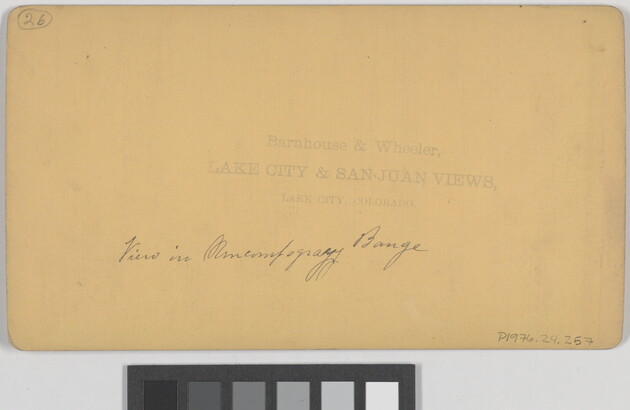 26
Barnhouse & Wheeler,
LAKE CITY & SAN JUAN VIEWS,
LAKE CITY, COLORADO.
View in Bange
P1976.24.257